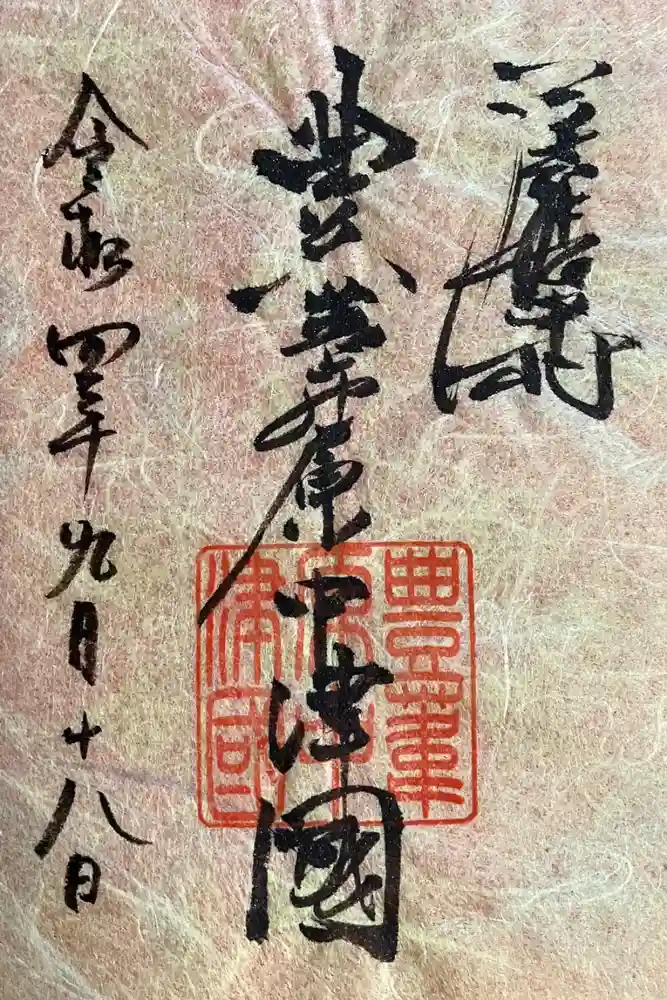 豊葦原中津國
令和四年九月十八日
豊葦
原中
津國